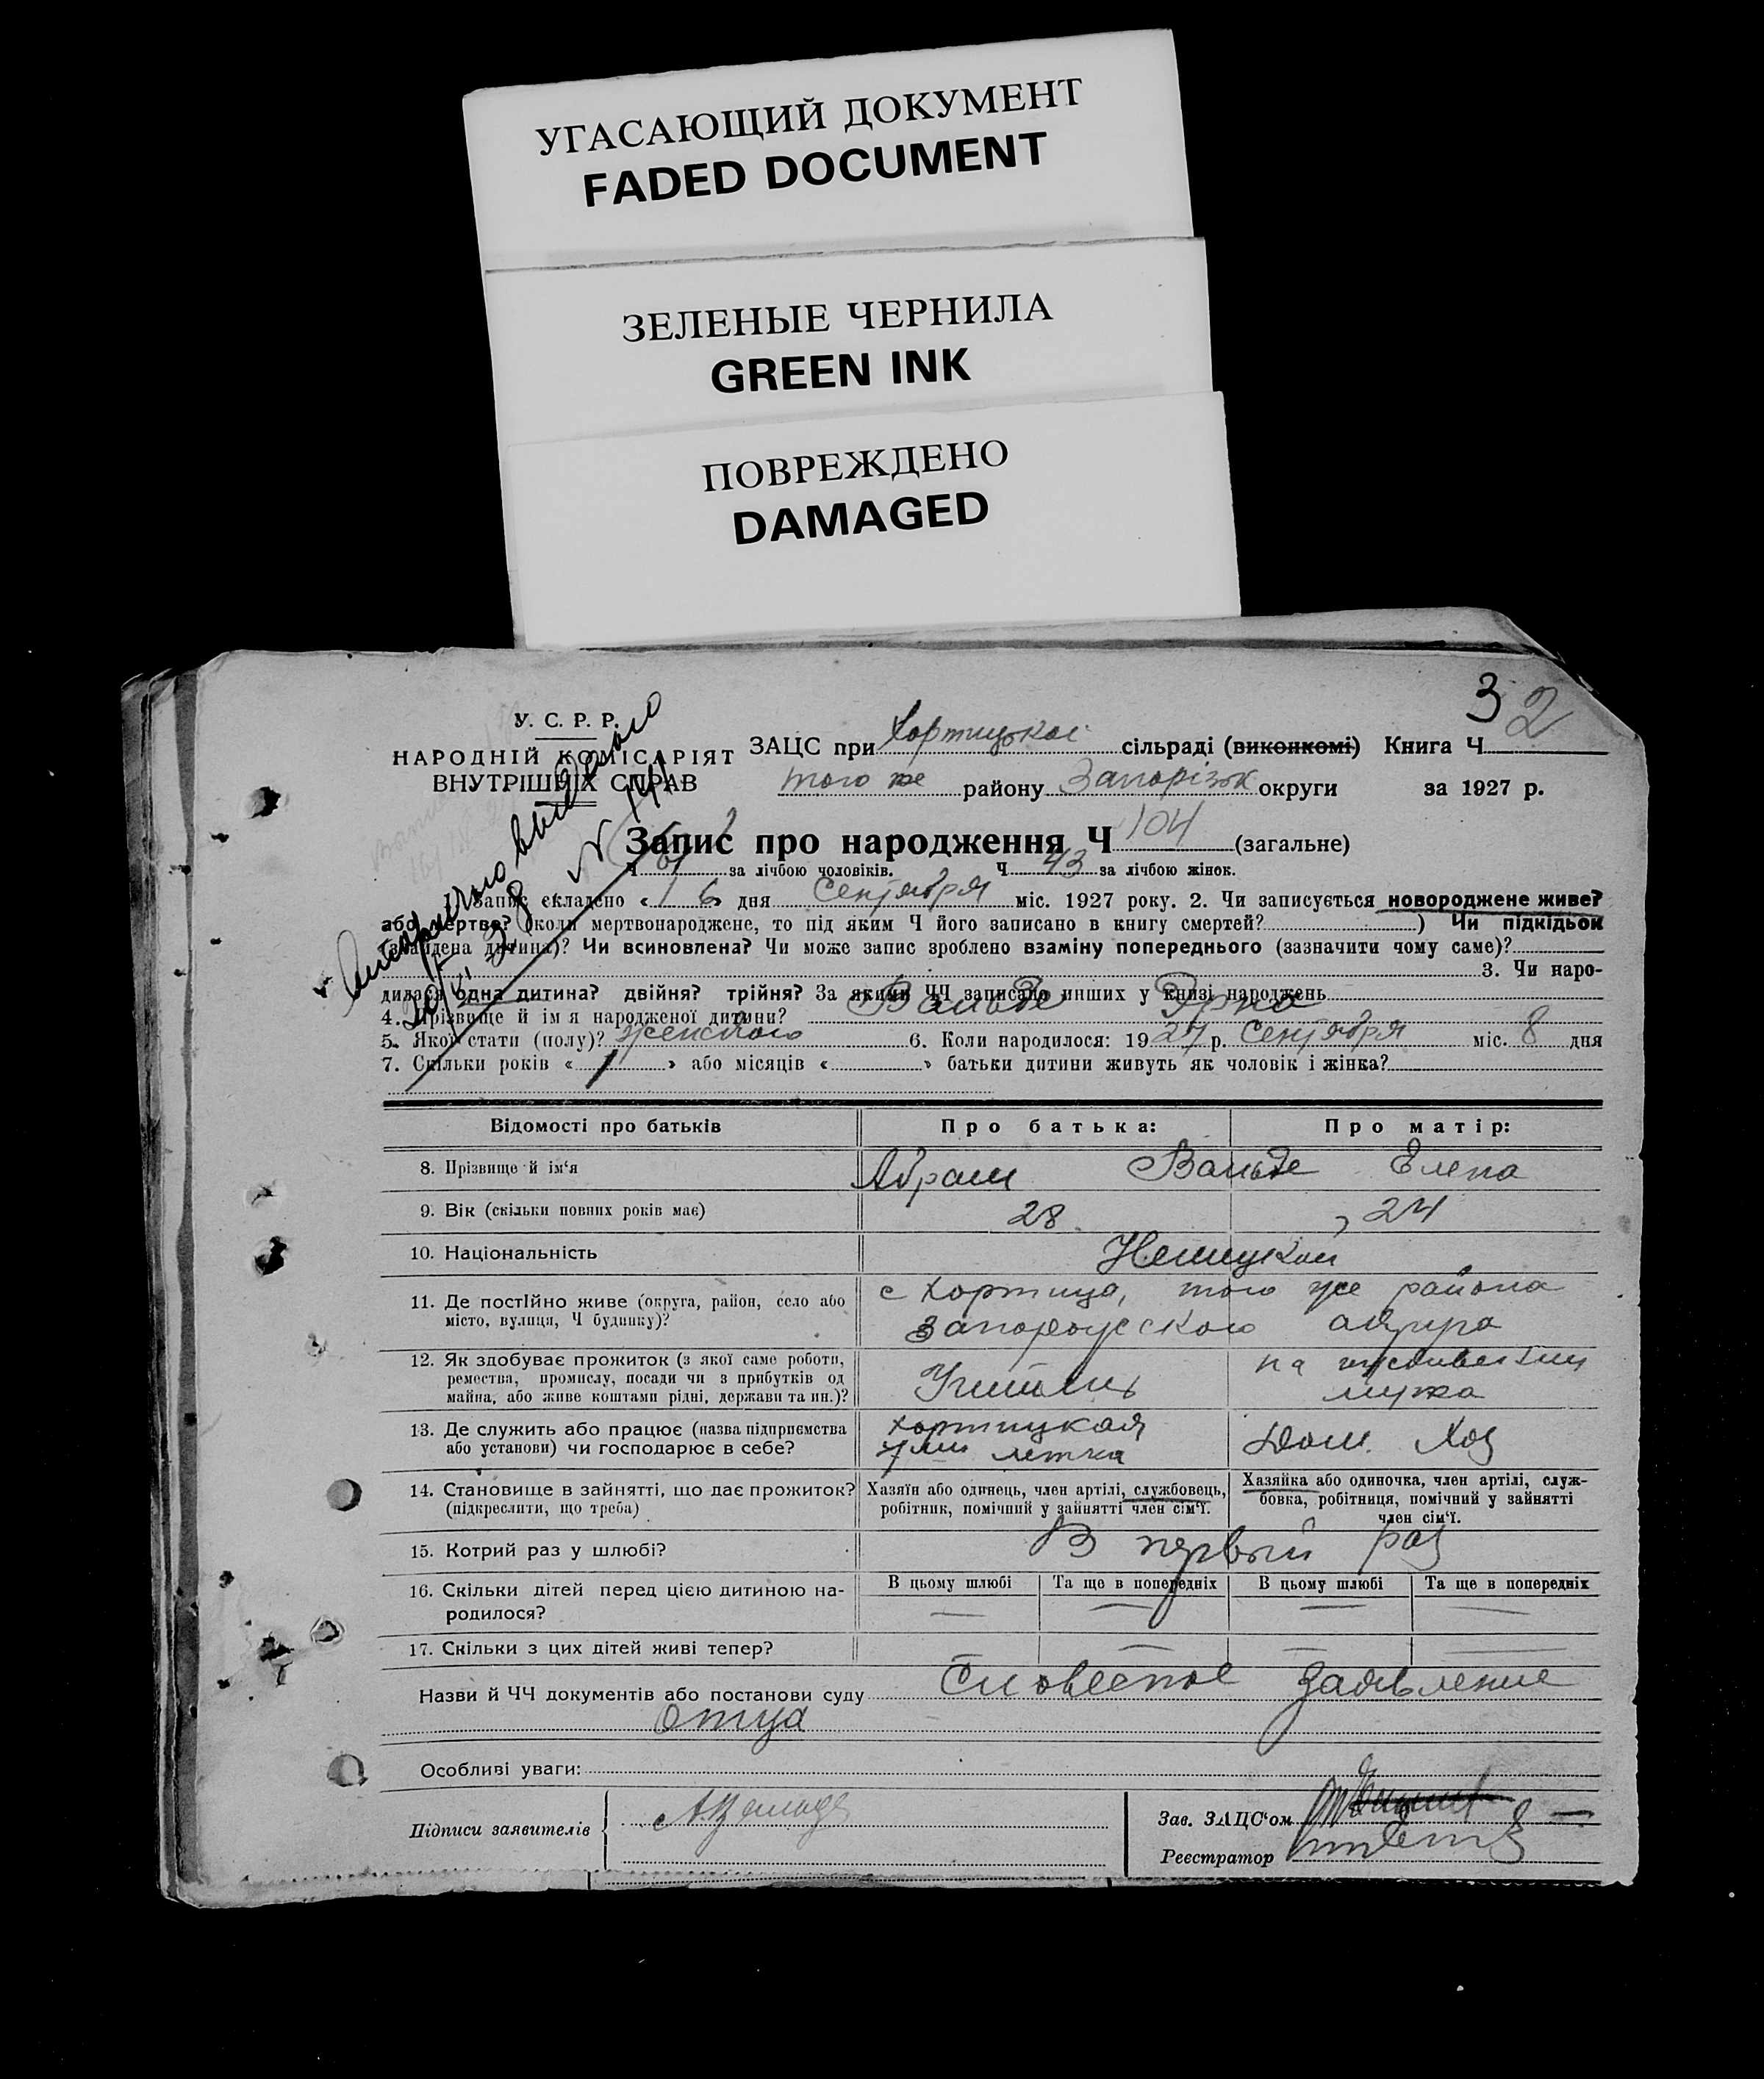 УГАСАЮЩИЙ ДОКУМЕНТ
FADED DOCUMENT
ЗЕЛЕНЫЕ ЧЕРНИЛА
GREEN INK
ПОВРЕЖДЕНО
DAMAGED
32
У. С. Р. Р.
НАРОДНІЙ КОМІСАРІЯТ
ВНУТРІШНІХ СПРАВ
ЗАЦС при Хортицької сільраді (виконкомі) Книга Ч
того же району Запорізьк округи за 1927 р.
Запис про народження Ч 104 (загальне)
Ч 61 за лічбою чоловіків. Ч 43 за лічбою жінок.
1. Запис складено «16» дня Сентября міс. 1927 року. 2. Чи записується новороджене живе?
або мертве? (коли мертвонароджене, то під яким Ч його записано в книгу смертей?) Чи підкідьок
(знайдена дитина)? Чи всиновлена? Чи може запис зроблено взаміну попереднього (зазначити чому саме)?
3. Чи наро-
дилася одна дитина? двійня? трійня? За якими ЧЧ записано инших у книзі народжень
4. Прізвище й ім я народженої дитини? Вальде Эрна
5. Якої стати (полу)? женского 6. Коли народилося: 1927 р. Сентября міс. 8 дня
7. Скільки років «1» або місяців « » батьки дитини живуть як чоловік і жінка?
Відомості про батьків Про батька: Про матір:
8. Прізвище й ім'я Абрам Вальде Елена
9. Вік (скільки повних років має) 28 24
10. Національність Немецкой
11. Де постійно живе (округа, район, село або с Хортица, того же района
місто, вулиця, Ч будинку)? Запорожского округа
12. Як здобуває прожиток (з якої саме роботи, на иждивении
ремества, промислу, посади чи з прибутків од Учитель мужа
майна, або живе коштами рідні, держави та ин.)?
13. Де служить або працює (назва підприємства Хортицкая Дом. Хоз
або установи) чи господарює в себе? 7ми летка
14. Становище в зайнятті, що дає прожиток? Хазяїн або одинець, член артілі, службовець, Хазяйка або одиночка, член артілі, служ-
(підкреслити, що треба) робітник, помічний у зайнятті член сім'ї. бовка, робітниця, помічний у зайнятті
член сім'ї.
15. Котрий раз у шлюбі? В первый раз
16. Скільки дітей перед цією дитиною на- В цьому шлюбі Та ще в попередніх В цьому шлюбі Та ще в попередніх
родилося? — — — —
17. Скільки з цих дітей живі тепер? — — — —
Назви й ЧЧ документів або постанови суду Словесное заявление
отца
Особливі уваги:
Підписи заявителів А Вальде
Зав. ЗАЦС'ом
Реєстратор